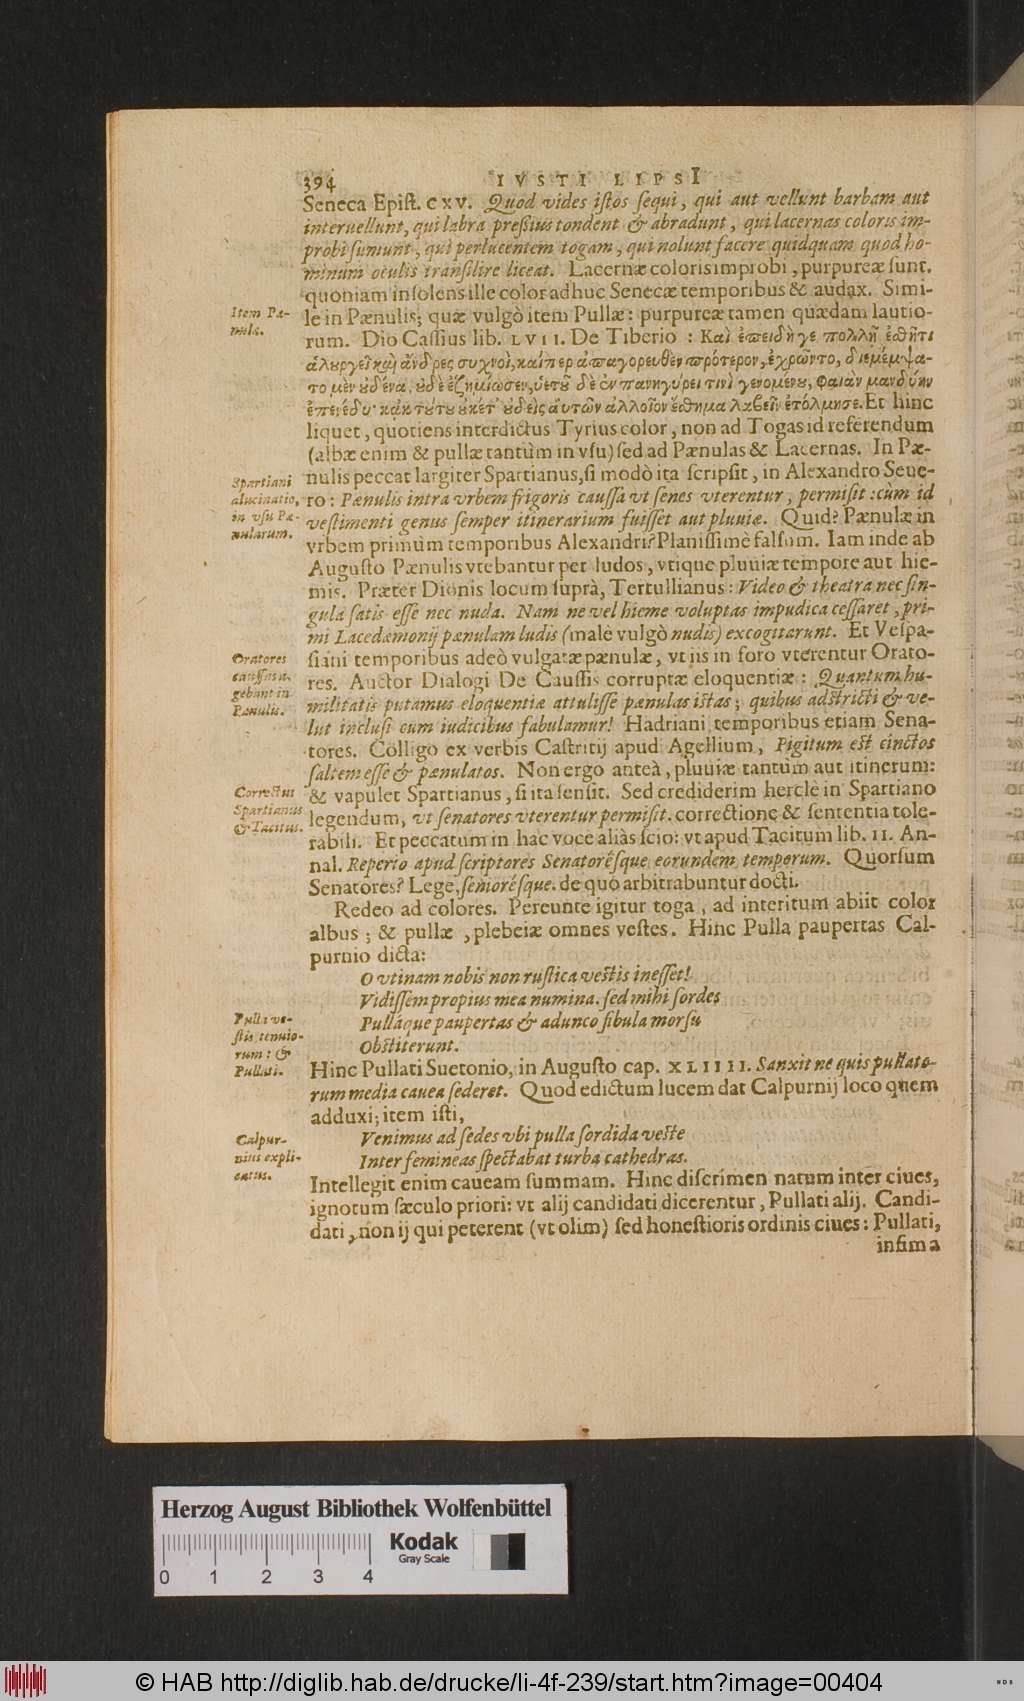 394 IVSTI LIPSI
Seneca Epist. CXV. Quod vides istos sequi, qui aut vellunt barbam aut
interuellunt, qui labra pressius tondent & abradunt, qui lacernas coloris im-
probi sumunt, qui perlucentem togam, qui nolunt facere quidquam quod ho-
minum oculis transilire liceat. Lacernæ coloris improbi, purpureæ sunt.
quoniam insolens ille color adhuc Senecæ temporibus & audax. Simi-
Item Pæ-
nula.
le in Pænulis; quæ vulgò item Pullæ: purpureæ tamen quædam lautio-
rum. Dio Cassius lib. LVII. De Tiberio : Καὶ ἐπειδὴ γε πολλῇ ἐσθῆτι
ἁλουργεῖ καὶ ἄνδρες συχνοὶ, καίπερ ἀπαγορευθὲν πρότερον, ἐχρῶντο, διεμέμψα-
το μὲν οὐδένα, οὐδὲ ἐζημίωσεν, ὑετοῦ δὲ ἐν πανηγύρει τινὶ γενομένου, φαιὰν μανδύην
ἐπενέδυ· κἀκ τούτου οὐκέτ' οὐδεὶς αὐτῶν ἀλλοῖον ἔσθημα λαβεῖν ἐτόλμησε. Et hinc
liquet, quotiens interdictus Tyrius color, non ad Togas id referendum
(albæ enim & pullæ tantùm in vsu) sed ad Pænulas & Lacernas. In Pæ-
Spartiani
alucinatio,
in vsu Pæ-
nularum.
nulis peccat largiter Spartianus, si modò ita scripsit, in Alexandro Seue-
ro : Pænulis intra vrbem frigoris caussa vt senes vterentur, permisit : cùm id
vestimenti genus semper itinerarium fuisset aut pluuiæ. Quid? Pænulæ in
vrbem primùm temporibus Alexandri? Planissimè falsum. Iam inde ab
Augusto Pænulis vtebantur per ludos, vtique pluuiæ tempore aut hie-
mis. Præter Dionis locum suprà, Tertullianus : Video & theatra nec sin-
gula satis esse nec nuda. Nam ne vel hieme voluptas impudica cessaret, pri-
mi Lacedæmonij pænulam ludis (malè vulgò nudis) excogitarunt. Et Vespa-
Oratores
caussam a-
gebant in
Pænulis.
siani temporibus adeò vulgatæ pænulæ, vt iis in foro vterentur Orato-
res. Auctor Dialogi De Caussis corruptæ eloquentiæ : Quantum hu-
militatis putamus eloquentiæ attulisse pænulas istas ; quibus adstricti & ve-
lut inclusi cum iudicibus fabulamur! Hadriani temporibus etiam Sena-
tores. Colligo ex verbis Castritij apud Agellium, Pigitum est cinctos
saltem esse & pænulatos. Non ergo anteà, pluuiæ tantùm aut itinerum:
Correctus
Spartianus
& Tacitus.
& vapulet Spartianus, si ita sensit. Sed crediderim herclè in Spartiano
legendum, vt senatores vterentur permisit. correctione & sententia tole-
rabili. Et peccatum in hac voce aliàs scio: vt apud Tacitum lib. II. An-
nal. Reperio apud scriptores Senatorésque eorundem temporum. Quorsum
Senatores? Lege, seniorésque. de quo arbitrabuntur docti.
Redeo ad colores. Pereunte igitur toga, ad interitum abiit color
albus ; & pullæ, plebeiæ omnes vestes. Hinc Pulla paupertas Cal-
purnio dicta:
O vtinam nobis non rustica vestis inesset!
Vidissem propius mea numina. sed mihi sordes
Pulla ve-
stis tenuio-
rum : &
Pullati.
Pulláque paupertas & adunco fibula morsu
Obstiterunt.
Hinc Pullati Suetonio, in Augusto cap. XLIIII. Sanxit ne quis pullato-
rum media cauea sederet. Quod edictum lucem dat Calpurnij loco quem
adduxi; item isti,
Calpur-
nius expli-
catus.
Venimus ad sedes vbi pulla sordida veste
Inter femineas spectabat turba cathedras.
Intellegit enim caueam summam. Hinc discrimen natum inter ciues,
ignotum sæculo priori: vt alij candidati dicerentur, Pullati alij. Candi-
dati, non ij qui peterent (vt olim) sed honestioris ordinis ciues : Pullati,
infima
Herzog August Bibliothek Wolfenbüttel
Kodak
Gray Scale
0 1 2 3 4
© HAB http://diglib.hab.de/drucke/li-4f-239/start.htm?image=00404